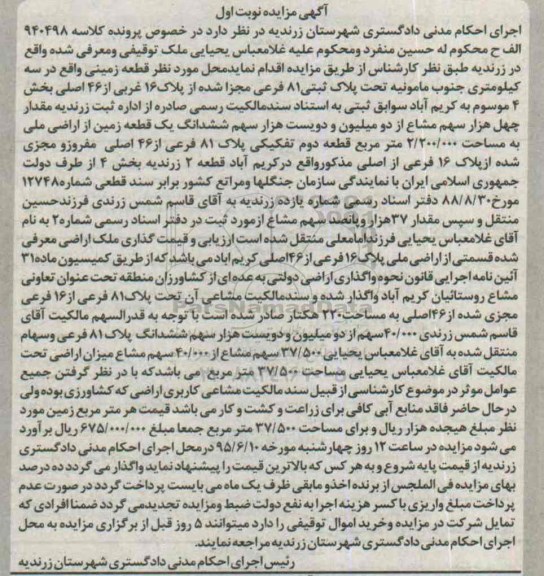 آگهی مزایده نوبت اول
اجرای احکام مدنی دادگستری شهرستان زرندیه در نظر دارد در خصوص پرونده کلاسه ۹۴۰۴۹۸
الف ح محکوم له حسین منفرد ومحکوم علیه غلامعباس یحیایی ملک توقیفی ومعرفی شده واقع
در زرندیه طبق نظر کارشناس از طریق مزایده اقدام نمایدمحل مورد نظر قطعه زمینی واقع در سه
کیلومتری جنوب مامونیه تحت پلاک ثبتی۸۱ فرعی مجزا شده از پلاک۱۶ غربی از۴۶ اصلی بخش
۴ موسوم به کریم آباد سوابق ثبتی به استناد سندمالکیت رسمی صادره از اداره ثبت زرندیه مقدار
چهل هزار سهم مشاع از دو میلیون و دویست هزار سهم ششدانگ یک قطعه زمین از اراضی ملی
به مساحت ۲/۲۰۰/۰۰۰ متر مربع قطعه دوم تفکیکی پلاک ۸۱ فرعی از۴۶ اصلی مفروزو مجزی
شده ازپلاک ۱۶ فرعی از اصلی مذکورواقع درکریم آباد قطعه ۲ زرندیه بخش ۴ از طرف دولت
جمهوری اسلامی ایران با نمایندگی سازمان جنگلها ومراتع کشور برابر سند قطعی شماره۱۲۷۴۸
مورخ۸۸/۸/۳۰ دفتر اسناد رسمی شماره یازده زرندیه به آقای قاسم شمس زرندی فرزندحسین
منتقل و سپس مقدار ۳۷هزار وپانصد سهم مشاع ازمورد ثبت در دفتر اسناد رسمی شماره۲ به نام
آقای غلامعباس یحیایی فرزندامامعلی منتقل شده است ارزیابی و قیمت گذاری ملک اراضی معرفی
شده قسمتی از اراضی ملی پلاک۱۶ فرعی از۴۶اصلی کریم اباد می باشد که از طریق کمیسیون ماده۳۱
آئین نامه اجرایی قانون نحوه واگذاری اراضی دولتی به عده ای از کشاورزان منطقه تحت عنوان تعاونی
مشاع روستائیان کریم آباد واگذار شده و سندمالکیت مشاعی آن تحت پلاک۸۱ فرعی از۱۶ فرعی
مجزی شده از۴۶اصلی به مساحت۲۲۰ هکتار صادر شده است با توجه به قدرالسهم مالکیت آقای
قاسم شمس زرندی ۴۰/۰۰۰سهم از دو میلیون و دویست هزار سهم ششدانگ پلاک ۸۱ فرعی وسهام
منتقل شده به آقای غلامعباس یحیایی ۳۷/۵۰۰ سهم مشاع از ۴۰/۰۰۰ سهم مشاع میزان اراضی تحت
مالکیت آقای غلامعباس یحیایی مساحت ۳۷/۵۰۰ متر مربع می باشدکه با در نظر گرفتن جمیع
عوامل موثر در موضوع کارشناسی از قبیل سند مالکیت مشاعی کاربری اراضی که کشاورزی بوده ولی
درحال حاضر فاقد منابع آبی کافی برای زراعت و کشت و کار می باشد قیمت هر متر مربع زمین مورد
نظر مبلغ هیجده هزار ریال و برای مساحت ۳۷/۵۰۰ متر مربع جمعا مبلغ ۶۷۵/۰۰۰/۰۰۰ریال برآورد
می شود مزایده در ساعت ۱۲ روز چهارشنبه مورخه ۹۵/۶/۱۰ درمحل اجرای احکام مدنی دادگستری
زرندیه از قیمت پایه شروع و به هر کس که بالاترین قیمت را پیشنهاد نماید واگذار می گردد ده درصد
بهای مزایده فی المجلس از برنده اخذو مابقی ظرف یک ماه می بایست پرداخت گردد در صورت عدم
پرداخت مبلغ واریزی با کسر هزینه اجرا به نفع دولت ضبط ومزایده تجدیدمی گردد ضمنا افرادی که
تمایل شرکت در مزایده وخرید اموال توقیفی را دارد میتوانند ۵ روز قبل از برگزاری مزایده به محل
اجرای احکام مدنی دادگستری شهرستان زرندیه مراجعه نمایند.
رئیس اجرای احکام مدنی دادگستری شهرستان زرندیه